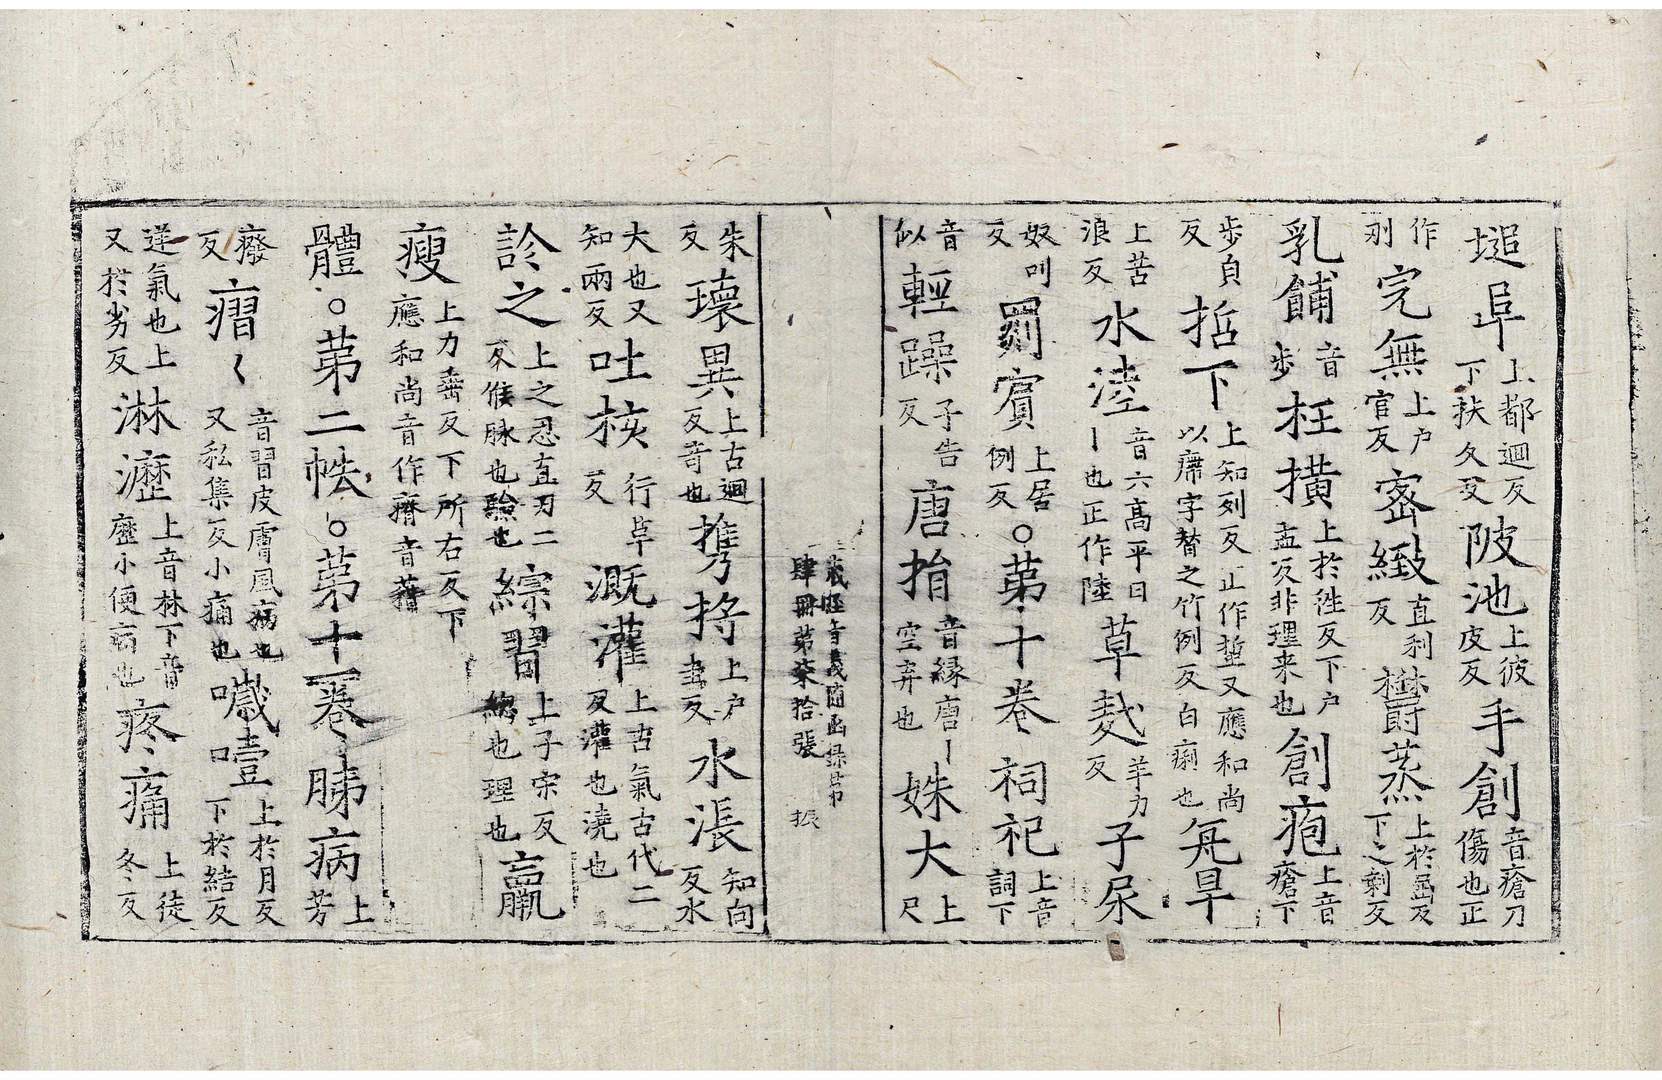 塠阜上都迴反下扶久反陂池上彼皮反手創音瘡刀傷也正
作刱完無上户官反密緻直利反欝蒸上於屈反下之剩反
乳餔音步枉撗上於徃反下户孟反非理来也創疱上音瘡下
步皰反哲下上知列反正作蜇又應和尚以癠字替之竹例反白痢也𠒎旱
上苦浪反水陸音六高平曰丨也正作陸草𦍙羊力反子尿
奴叫反罽賓上居例反○第十卷祠祀上音詞下
音似輕躁子告反唐捐音緣唐丨空弃也姝大上尺
藏經音義隨函録第
肆冊第柒拾張 振
朱反瓌異上古迴反竒也擕捋上户圭反水漲知向反水
大也又知兩反吐核行革反溉灌上古氣古代二反灌也澆也
診之上之忍直刃二反候脉也驗也綜習上子宋反緫也理也羸
瘦上力垂反下所右反下應和尚音作瘠音藉
體○第二帙○第十一卷𦙫病上芳
癈反㿇〱音習皮膚風病也又私集反小痛也噦噎上於月反下於結反
逆氣也上又於劣反淋瀝上音林下音歷小便病也疼痛上徒冬反